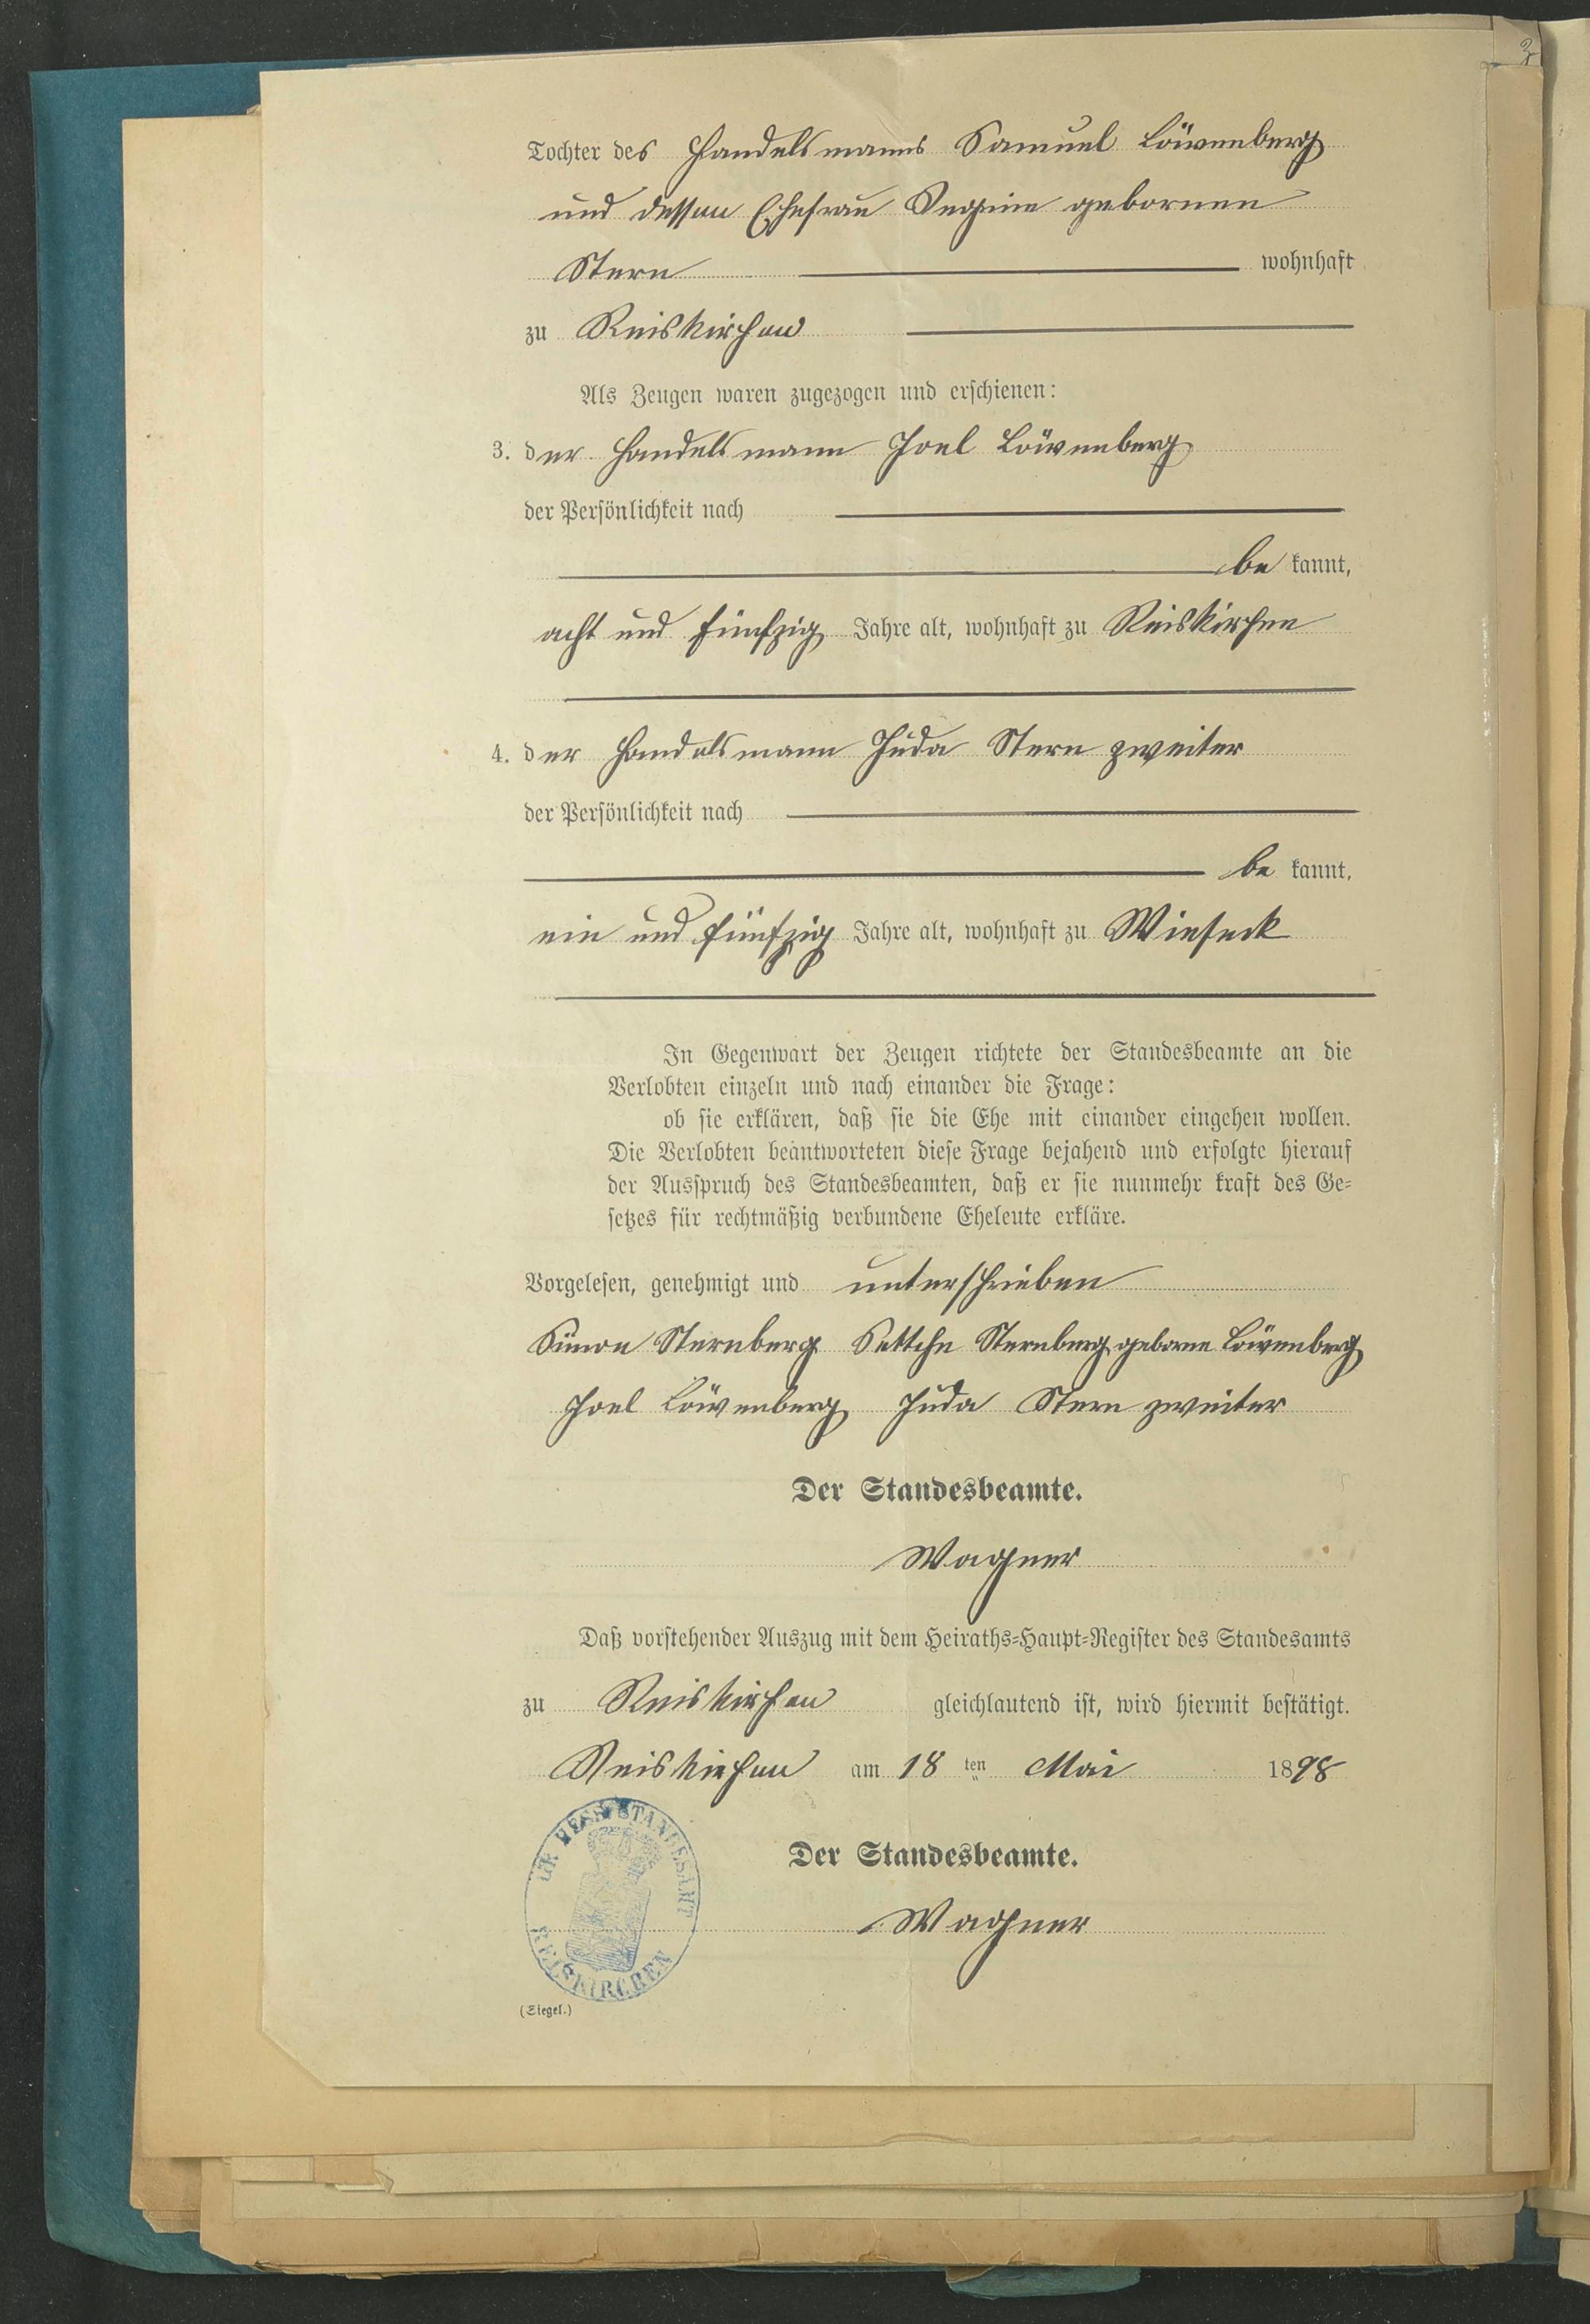 3
Tochter des Handelsmanns Samuel Löwenberg
und dessen Ehefrau gebornen
Stern wohnhaft
zu Reiskirchen
Als Zeugen waren zugezogen und erschienen:
3. der Handelsmann Joel Löwenberg
der Persönlichkeit nach
be kannt,
acht und fünfzig Jahre alt, wohnhaft zu Reiskirchen
4. der Handelsmann Juda Stern zweiter
der Persönlichkeit nach
be kannt,
ein und fünfzig Jahre alt, wohnhaft zu Wieseck
In Gegenwart der Zeugen richtete der Standesbeamte an die
Verlobten einzeln und nach einander die Frage:
ob sie erklären, daß sie die Ehe mit einander eingehen wollen.
Die Verlobten beantworteten diese Frage bejahend und erfolgte hierauf
der Ausspruch des Standesbeamten, daß er sie nunmehr kraft des Ge-
setzes für rechtmäßig verbundene Eheleute erkläre.
Vorgelesen, genehmigt und unterschrieben
Simon Sternberg Settchen Sternberg geborne Löwenberg
Joel Löwenberg Juda Stern zweiter
Der Standesbeamte.
Wagner
Daß vorstehender Auszug mit dem Heiraths-Haupt-Register des Standesamts
zu Reiskirchen gleichlautend ist, wird hiermit bestätigt.
Reiskirchen am 18 ten Mai 1898
Der Standesbeamte.
Wagner
GR. HESS. STANDESAMT
REISKIRCHEN
(Siegel.)